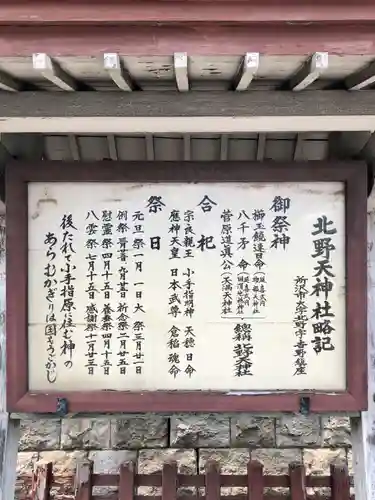 北野天神社略記
所沢市大字北野字吉野鎮座
御祭神
櫛玉饒速日命
八千矛命
菅原道真公
総称 北野天神社
合祀
宗良親王 小手指明神
応神天皇 日本武尊
天穂日命
倉稲魂命
祭日
元旦祭 一月一日
大祭 三月廿一日
例祭
祈念祭 二月廿五日
慰霊祭 四月十五日
養蚕祭 四月十五日
八雲祭 七月十五日
感謝祭 十二月廿三日
後たれて小手指原に住む神の
あらむかぎりは国もうごかじ